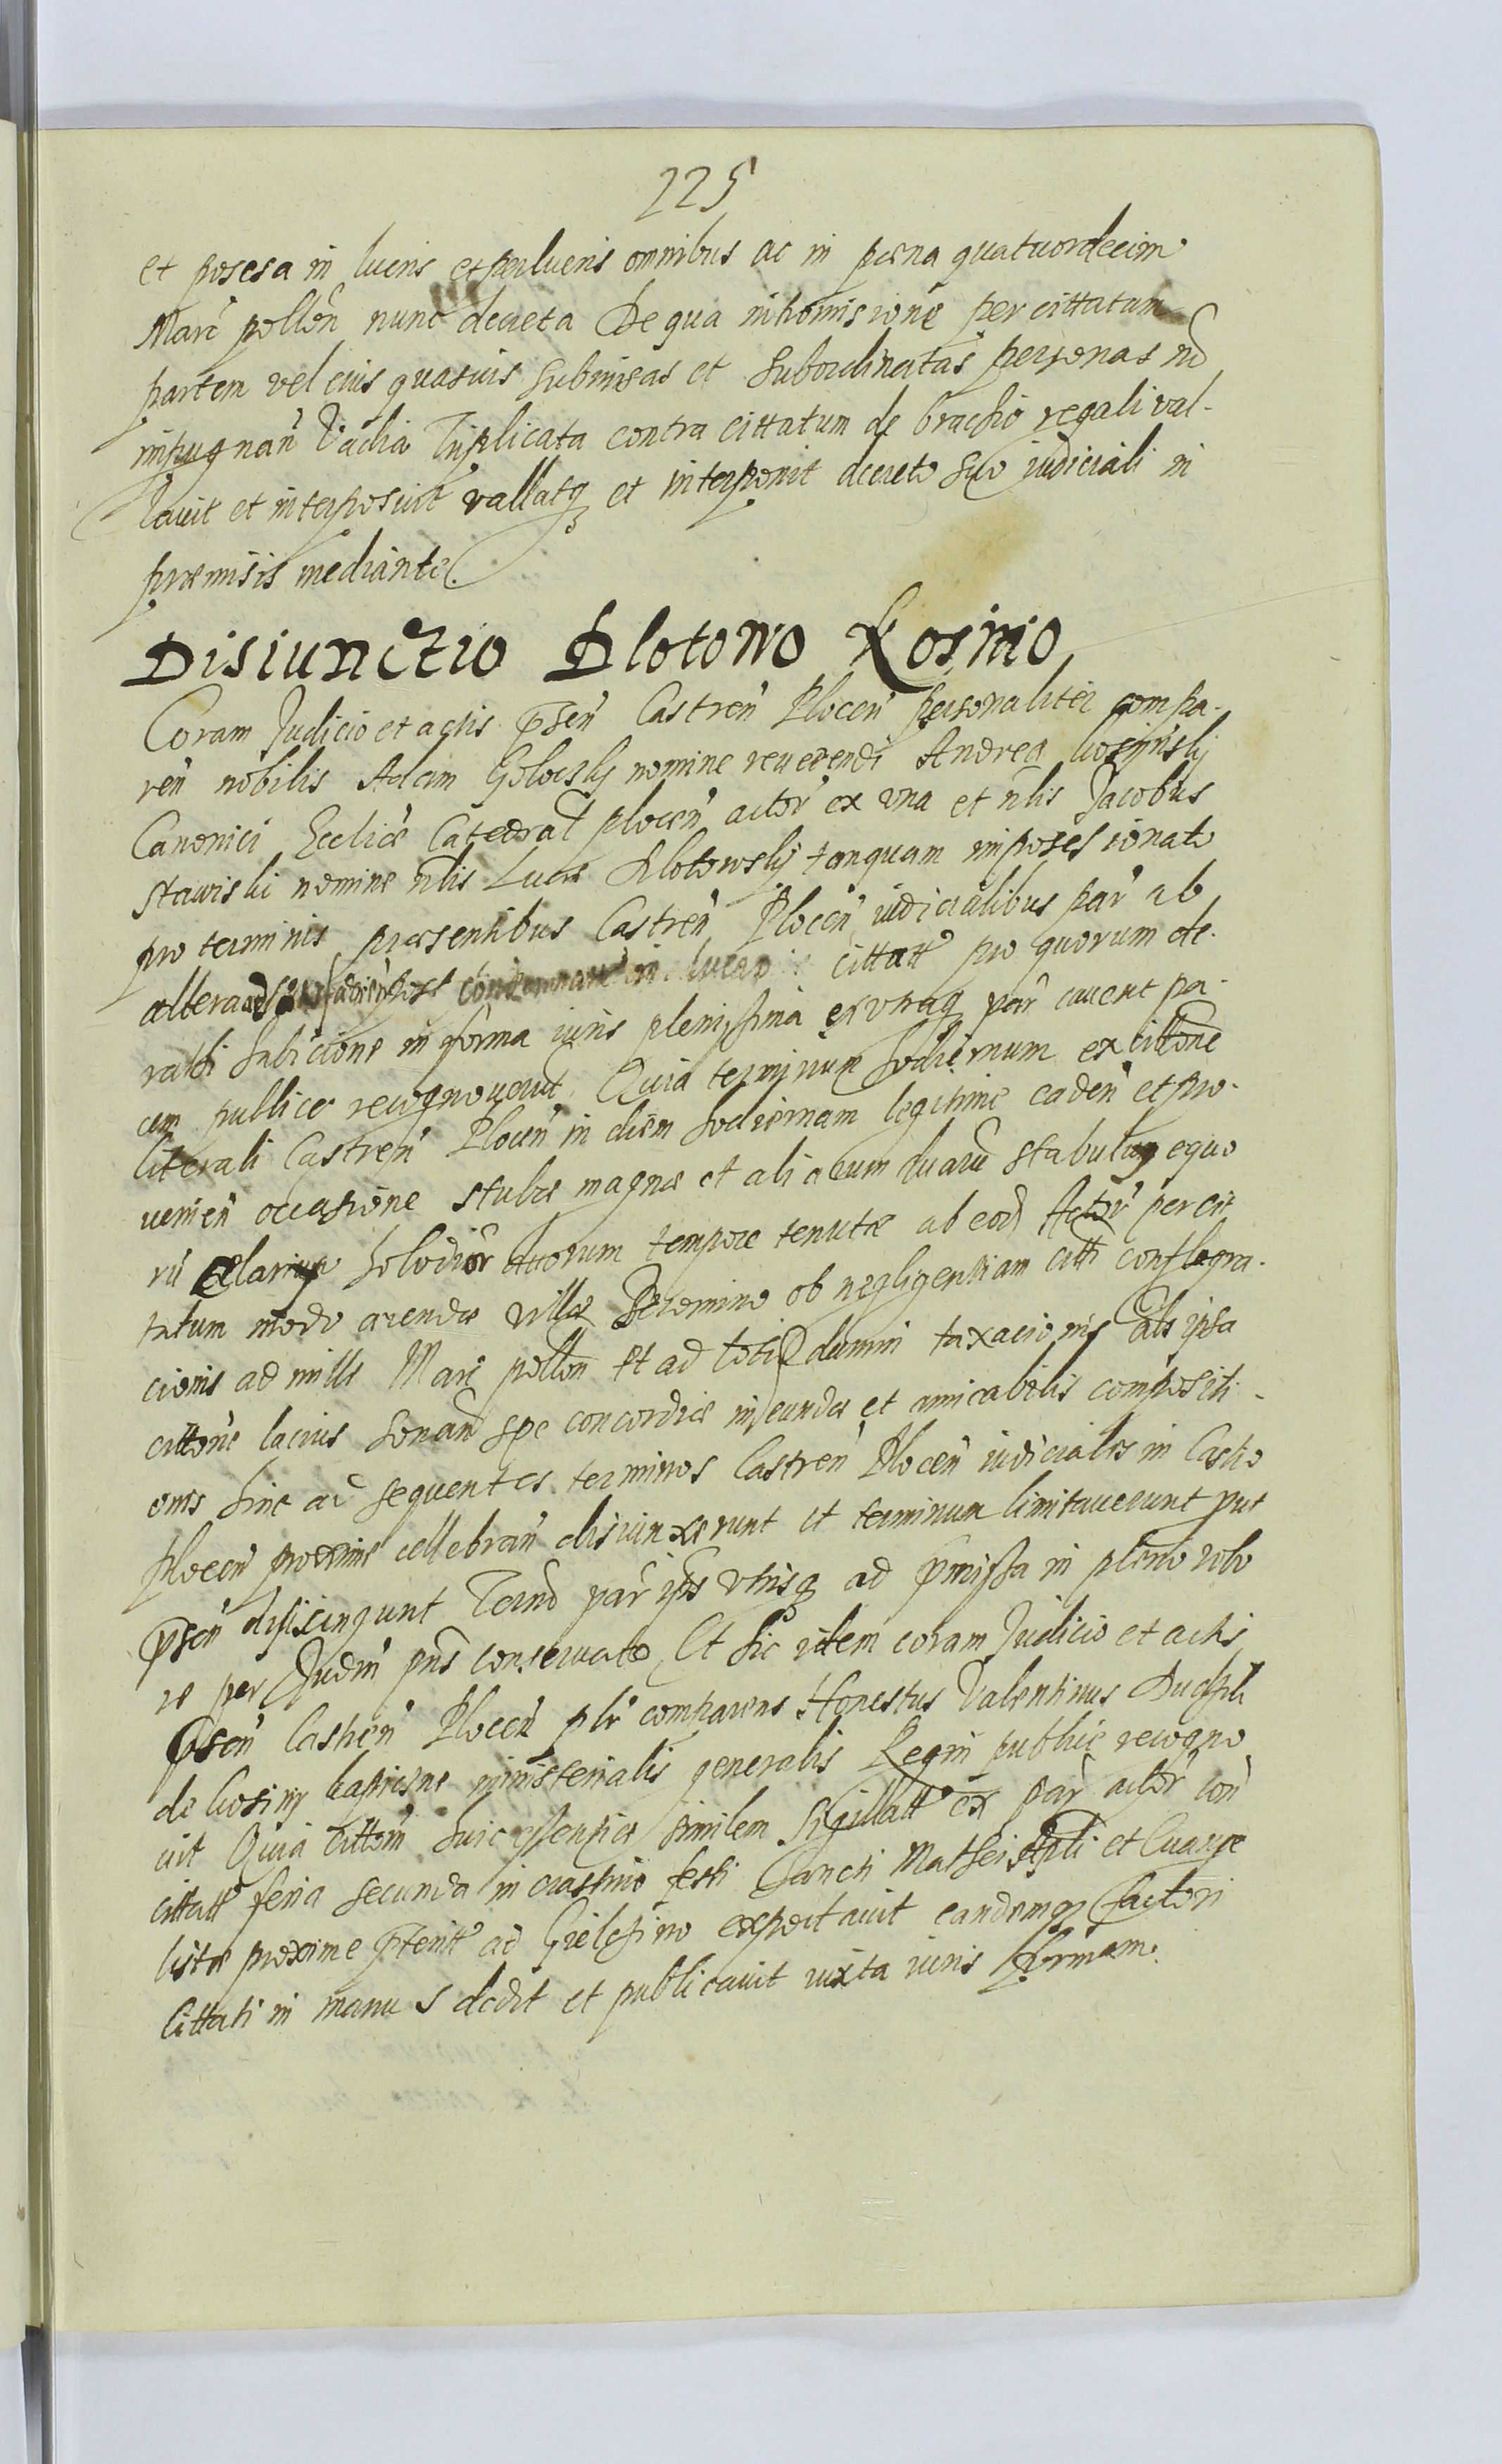 225
et posesa in lucris et perlucris omnibus ac in pœna quatuordecim
Marc̃ pollon̄ nunc decreta De qua intromisione per cittatum
partem vel eius quasuis submisas et subordinatas personas nō
inpugnan̄ Vadia Triplicata contra cittatum de brachio regali val-
lauit et interposuit vallatq3 et interponit decreto suo iudiciali in
præmisis mediante.
Disiunctio Blotowo Kosino
Coram Judicio et actis p̄sen̄ Castren̄ Plocen̄ personaliter compa-
ren̄ nobilis Adam Golocsky nomine reuerendi Andrea kosinsky
Canonici Eccliæ Catedral̄ plocen̄ actor̄ ex vna et nb̄lis Jacobus
stawiski nomine nb̄lis Lucæ Blotowsky tanquam imposesionato
pro terminis præsentibus Castren̄ Plocen̄ iudicialibus par̄ ab
altera post condemnat̄ in lucro cittatt̄ pro quorum de-
ratti subicione in forma iuris plenissima ex vtraq3 par̄ cauent pa-
cem pullice recognouerut Quia terminum hodiernum ex cittōne
literali Castren̄ Plocen̄ in diem hodiernam legitime caden̄ et pro-
uenien̄ occasione stubæ magnæ et aliarum duarū stabulum equo
rū tempore tenutæ ab eod̄ Actor̄ per cit
tatum modo arendæ villæ ob negligentiam citt̄i conflegra-
cionis ad mille Marc̄ pollon̄ et ad toti damni taxacionis ab ipsa
cittōne lacius sonan̄ spe concordiæ ineundæ et amicabilis compositi-
onis hinc ad sequentes terminos Castren̄ Plocen̄ iudicialis in Castro
plocen̄ proxime cellebran̄ disiunxerunt et terminum limitauerunt put
p̄sen̄ disiungunt Termō par̄ ip̄is vtrisq3 ad p̄missa in pleno robo
re per Judm̄ pn̄s conseruato Et hic idem coram Judicio et actis
p̄sen̄ Castren̄ Plocen̄ plr̄ comparens Honestus Valentinus
de kosiny ministerialis generalis Regni publice recogno
uit Quia cittōm̄ huic essentiæ similem sigillatt̄ ex par̄ actor̄ con̄
cittatt̄ feria secunda in crastino festi Sancti Mathei Apl̄i et Euange
listæ proxime p̄terit̄ ad expectauit eandemq3
Cittati in manus dedit et publicauit iuxta iuris formam.